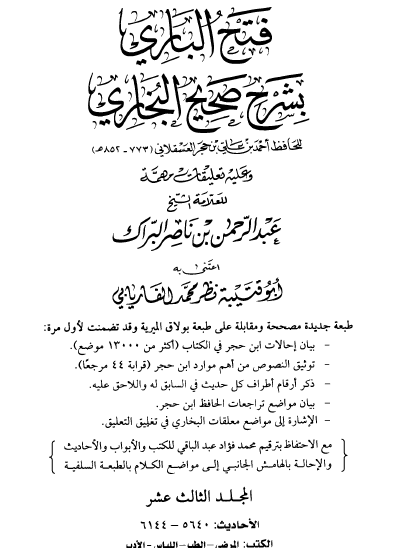 فتح الباري
بشرح صحيح البخاري
للحافظ أحمد بن علي بن حجر العسقلاني (٧٧٣ - ٨٥٢هـ)
وعليه تعليقات مهمة
للعلامة الشيخ
عبد الرحمن بن ناصر البراك
اعتنى به
أبو قتيبة نظر محمد الفاريابي
طبعة جديدة مصححة ومقابلة على طبعة بولاق الميرية وقد تضمنت لأول مرة:
- بيان إحالات ابن حجر في الكتاب (أكثر من ١٣٠٠٠ موضع).
- توثيق النصوص من أهم موارد ابن حجر (قرابة ٤٤ مرجعًا).
- ذكر أرقام أطراف كل حديث في السابق له واللاحق عليه.
- بيان مواضع تراجعات الحافظ ابن حجر.
- الإشارة إلى مواضع معلقات البخاري في تغليق التعليق.
مع الاحتفاظ بترقيم محمد فؤاد عبد الباقي للكتب والأبواب والأحاديث
والإحالة بالهامش الجانبي إلى مواضع الكلام بالطبعة السلفية
المجلد الثالث عشر
الأحاديث: ٥٦٤٠ - ٦١٤٤
الكتب: المرضى-الطب-اللباس-الأدب